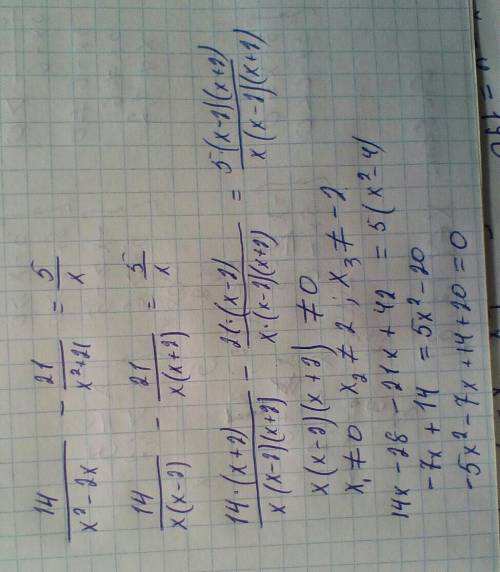 14/(x²-2x) - 21/(x²+2x) = 5/x
14/(x(x-2)) - 21/(x(x+2)) = 5/x
14·(x+2)/(x(x-2)(x+2)) - 21·(x-2)/(x·(x-2)(x+2)) = 5·(x-2)(x+2)/(x(x-2)(x+2))
x(x-2)(x+2) ≠ 0
x₁ ≠ 0 x₂ ≠ 2 ; x₃ ≠ -2
14x - 28 - 21x + 42 = 5(x²-4)
-7x + 14 = 5x² - 20
-5x² - 7x + 14 + 20 = 0